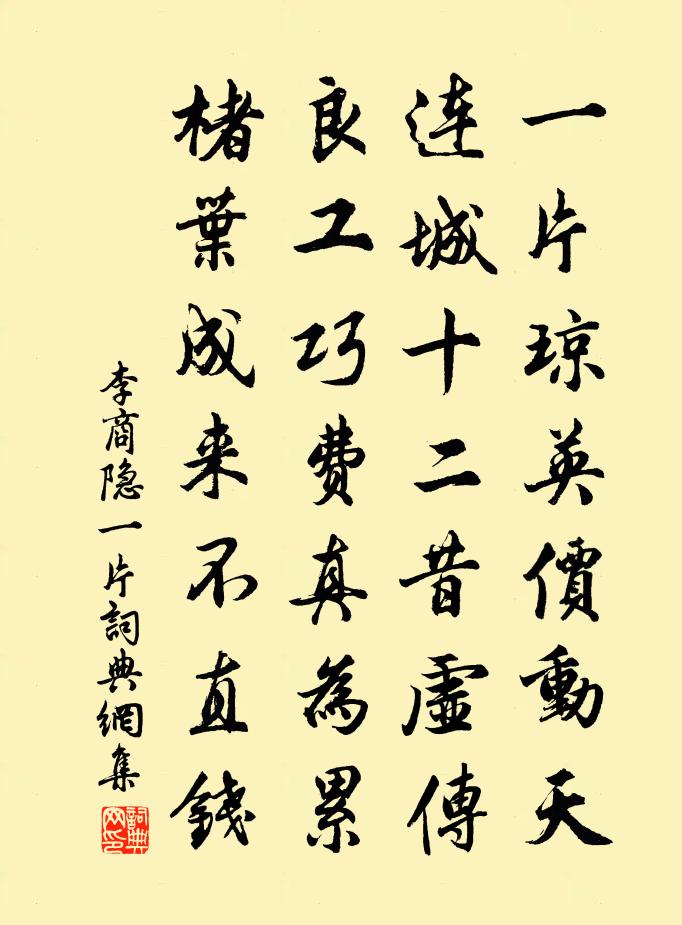 一片琼英價動天
連城十二昔虛傳
良工巧費真為累
楮葉成来不直錢
李商隐一片詞典網集
詞典網印